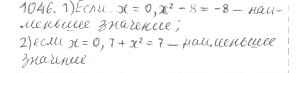 1046. 1) Если x = 0, x² - 8 = -8 — наи-
меньшее значение;
2) если x = 0, 7 + x² = 7 — наименьшее
значение